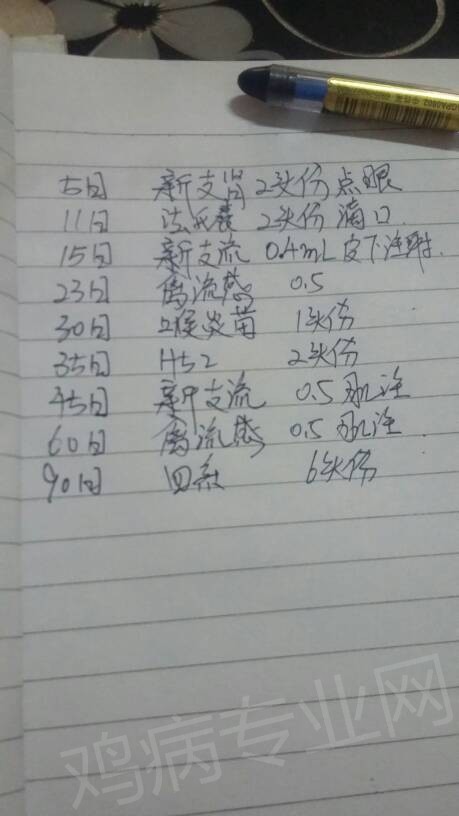 5日 新支肾 2头份 点眼
11日 法氏囊 2头份 滴口
15日 新支流 0.4mL 皮下注射.
23日 禽流感 0.5
30日 喉炎苗 1头份
35日 H52 2头份
45日 新支流 0.5 肌注
60日 禽流感 0.5 肌注
90日 四系 6头份
鸡病专业网